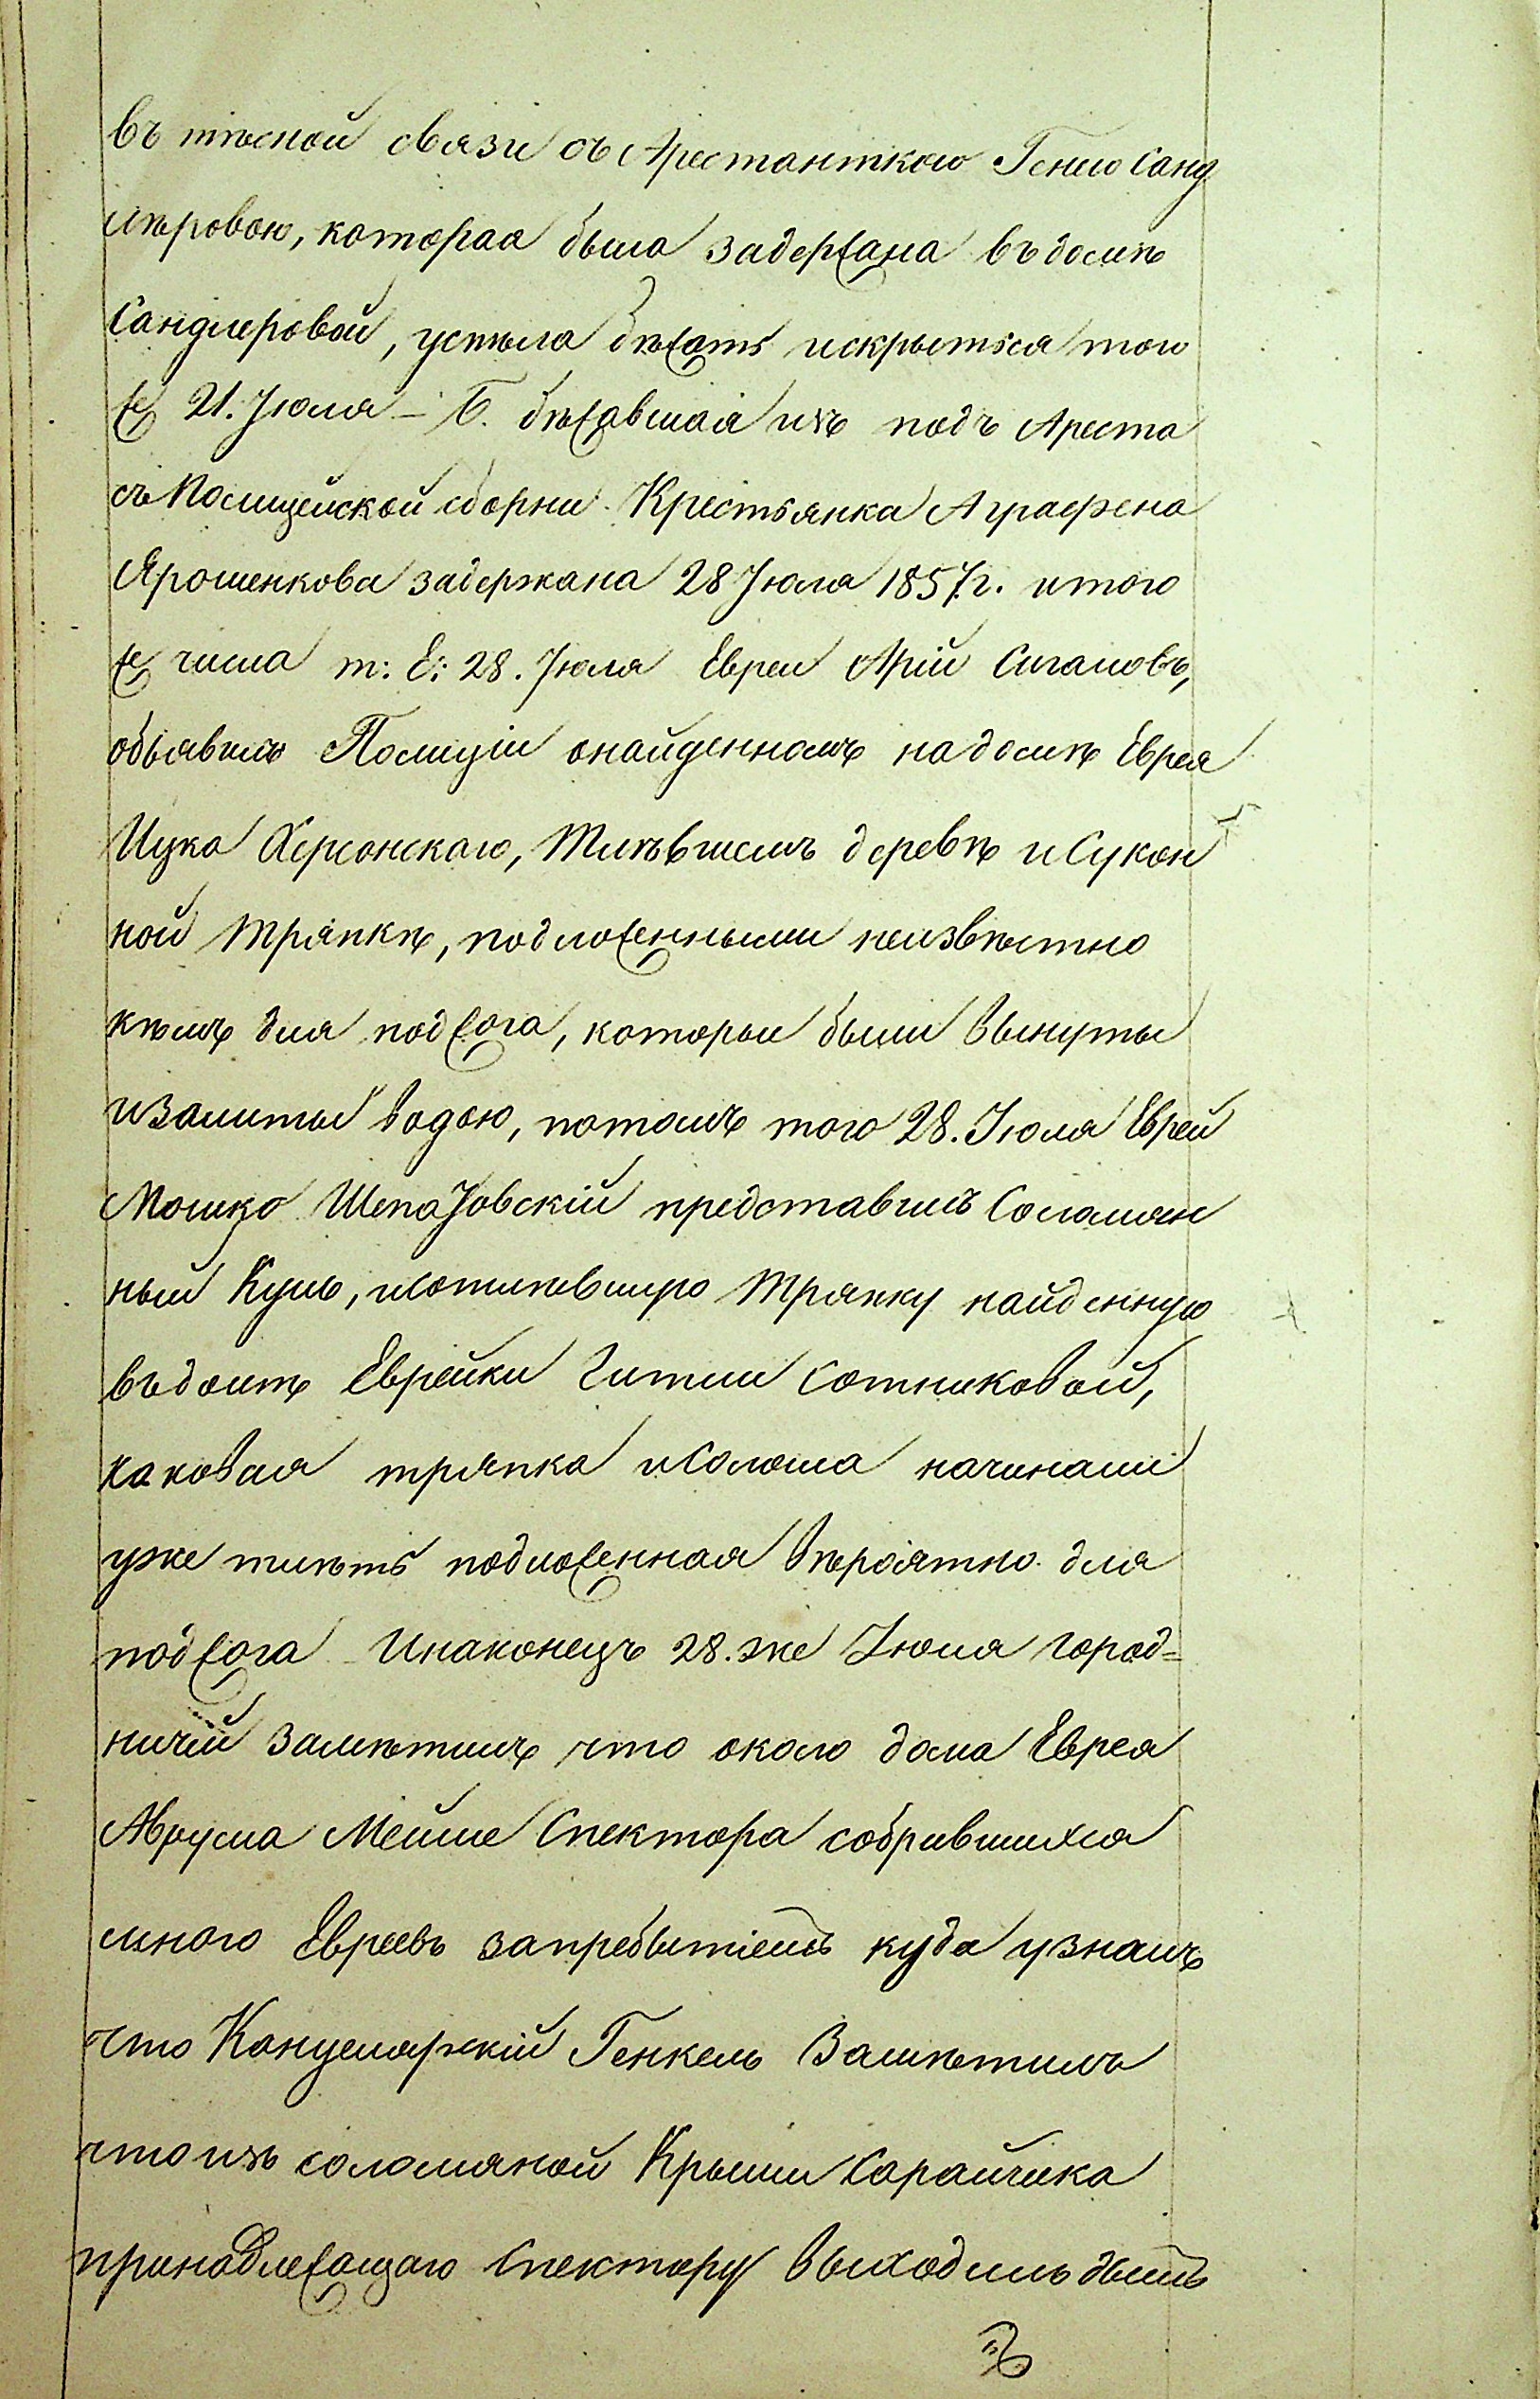 въ тѣсной связи съ Арестанткою Генею Санд
лѣровою, которая была задержана въ домѣ
Сандлеровой, успѣла бѣжать искрыться того
же 21. Іюля – Б. бѣжавшая изъ подъ Ареста
съ Полицейской сборни Крестьянка Аграфена
Ярошенкова задержана 28 Іюля 1857 г. итого
же числа т: е: 28. Іюля Евреи Арій Сигаловъ,
обьявилъ Полиціи онайденномъ надомѣ Еврея
Ицка Херсонскаго, Тлѣвшемъ деревѣ иСукон
ной Тряпкѣ, подложенными неизвѣстно
кѣмъ для поджога, которыи были вынуты
изалиты водою, потомъ того 28. Іюля Еврей
Мошко Шепа́ховскій представилъ Соломян
ный Куль, иСотлѣвшую Тряпку найденную
въдомѣ Еврейки Гитли Сотниковой,
каковая тряпка иСолома начинали
уже тлѣть подложенная вѣроятно для
поджога Инаконецъ 28. же Іюля Город=
ничій Замѣтилъ что около дома Еврея
Аврума Мейше Спектора собравшихся
много Евреевъ запребытіемъ куда узналъ
что Канцелярскій Генкель Замѣтилъ
что изъ соломяной Крыши Сарайчика
принадлежащаго Спектору выходилъ дымъ